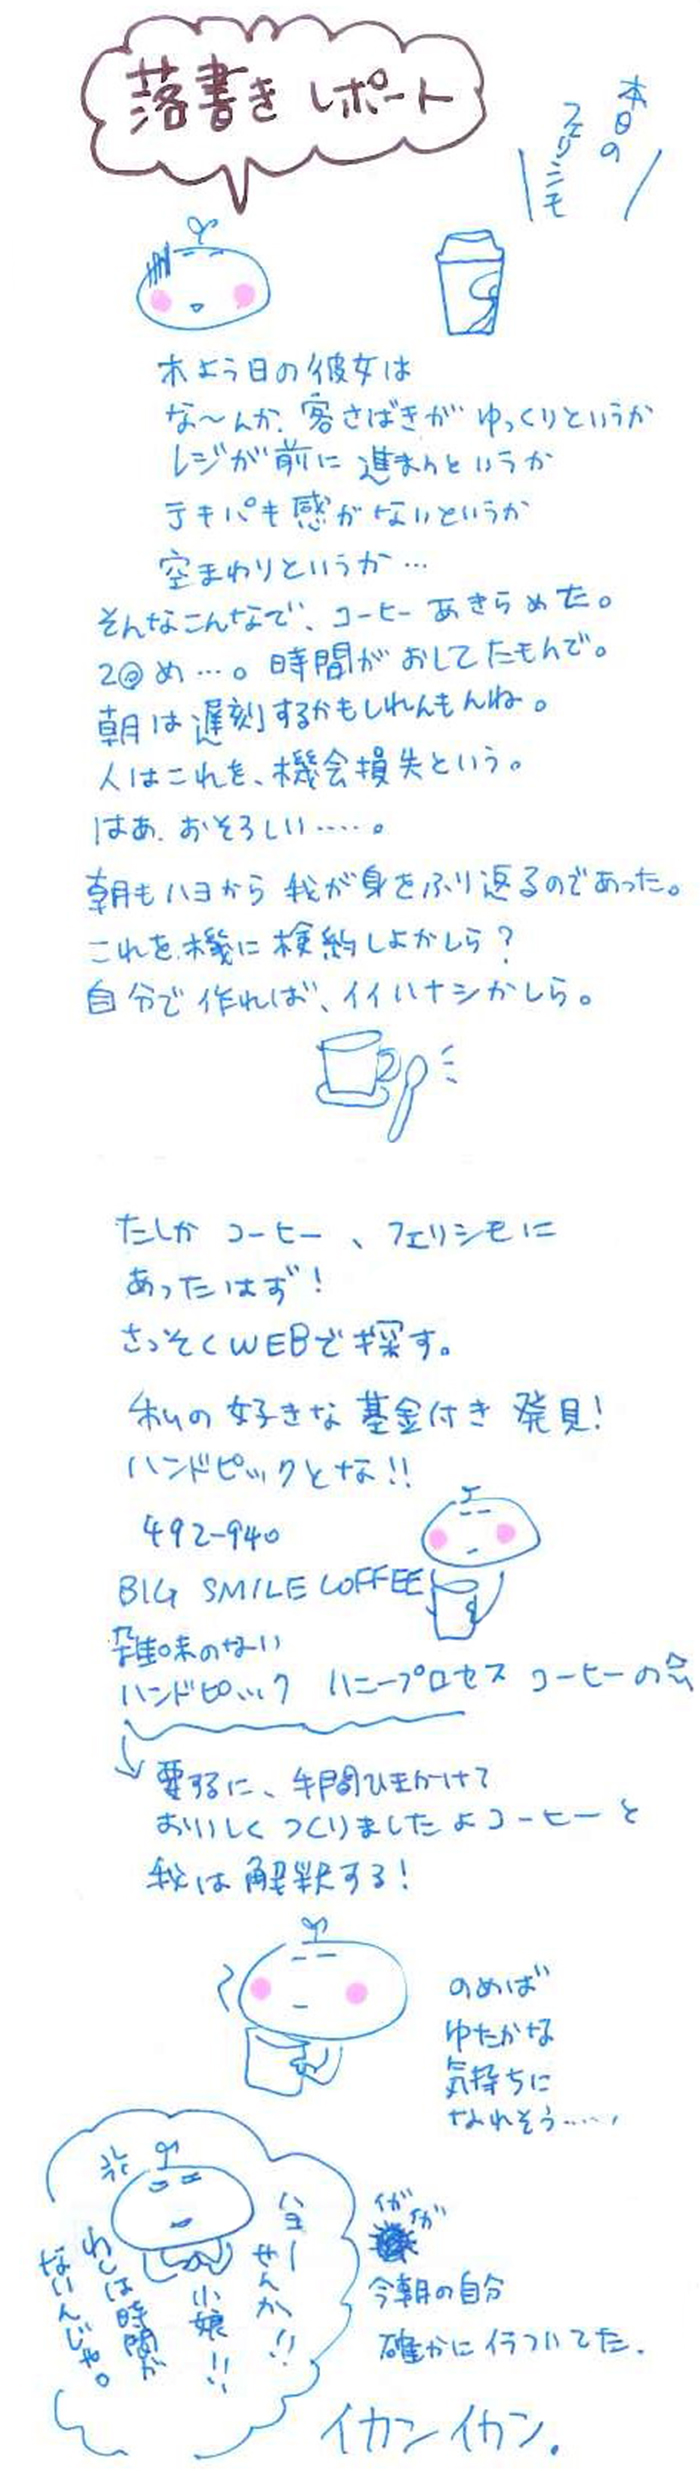 落書き レポート
本日の
フェリシモ
木よう日の彼女は
な〜んか、客さばきが ゆっくりというか
レジが前に進まんというか
テキパキ感がないというか
空まわりというか…
そんなこんなで、コーヒー あきらめた。
2@め…。時間がおしてたもんで。
朝は遅刻するかもしれんもんね。
人はこれを、機会損失という。
はあ、おそろしい……。
朝もハヨから 我が身をふり返るのであった。
これを機に検約しよかしら?
自分で作れば、イイハナシかしら。
たしか コーヒー、フェリシモに
あったはず!
さっそくWEBで探す。
私の好きな基金付き 発見!
ハンドピックとな!!
492-940
BIG SMILE COFFEE
雑味のない
ハンドピック ハニープロセス コーヒーの会
要するに、手間ひまかけて
おいしく つくりましたよコーヒーと
我は解釈する!
のめば
ゆたかな
気持ちに
なれそう……
ハヨー
せんか!!
小娘!!
わしは時間が
ないんじゃ。
イガ
イガ
今朝の自分
確かにイラついてた.
イカンイカン.